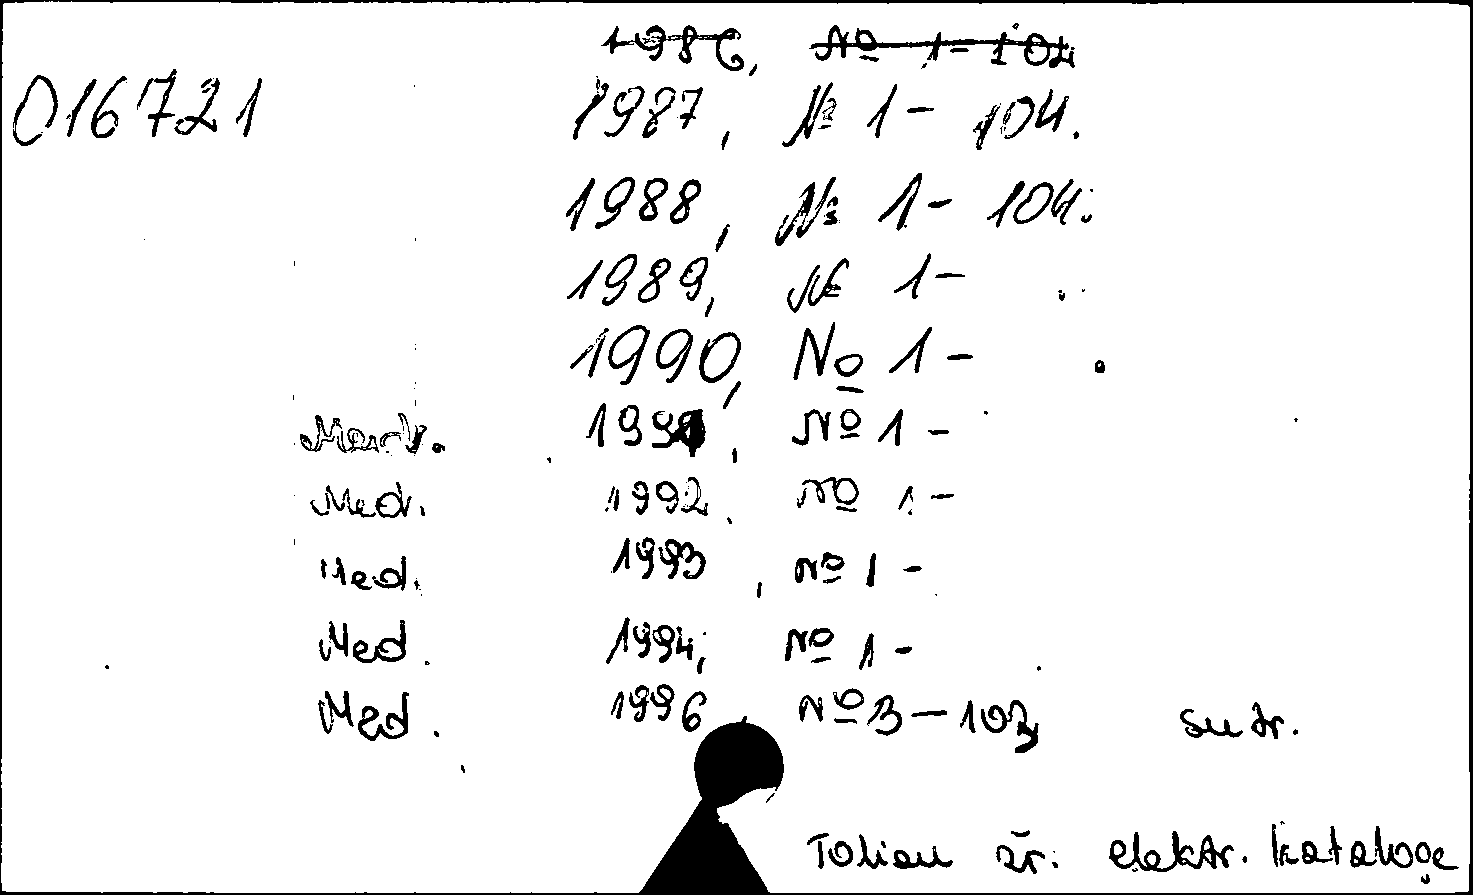 1986, № 1-104
016721 1987, № 1- 104.
1988, № 1- 104.
1989, № 1-
1990, № 1-
1991, № 1-
Med. 1992, № 1-
Med. 1993, № 1-
Med. 1994, № 1-
Med. 1996, № 3-103, su tr.
Toliau žr. elektr. kataloge